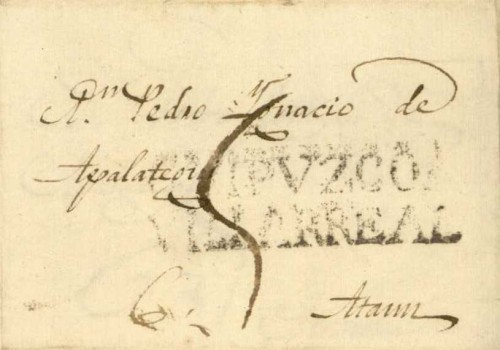 A Dn Pedro Ygnacio de
Apalategui
GUIPVZCOA
VILLARREAL
5
Ataun